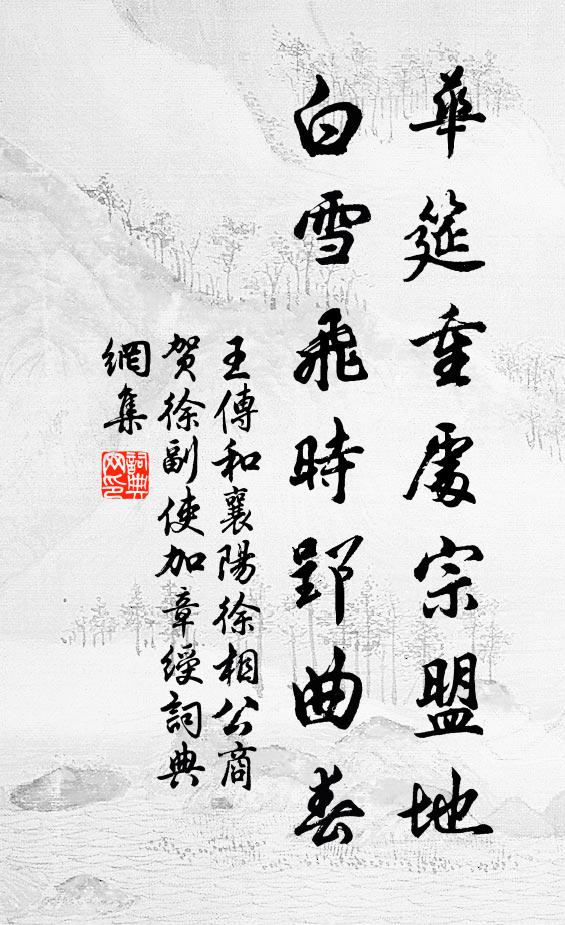 華筵重處宗盟地
白雪飛時郢曲春
王傅和襄陽徐相公商
賀徐副使加章綬詞典
網集
詞典
网印